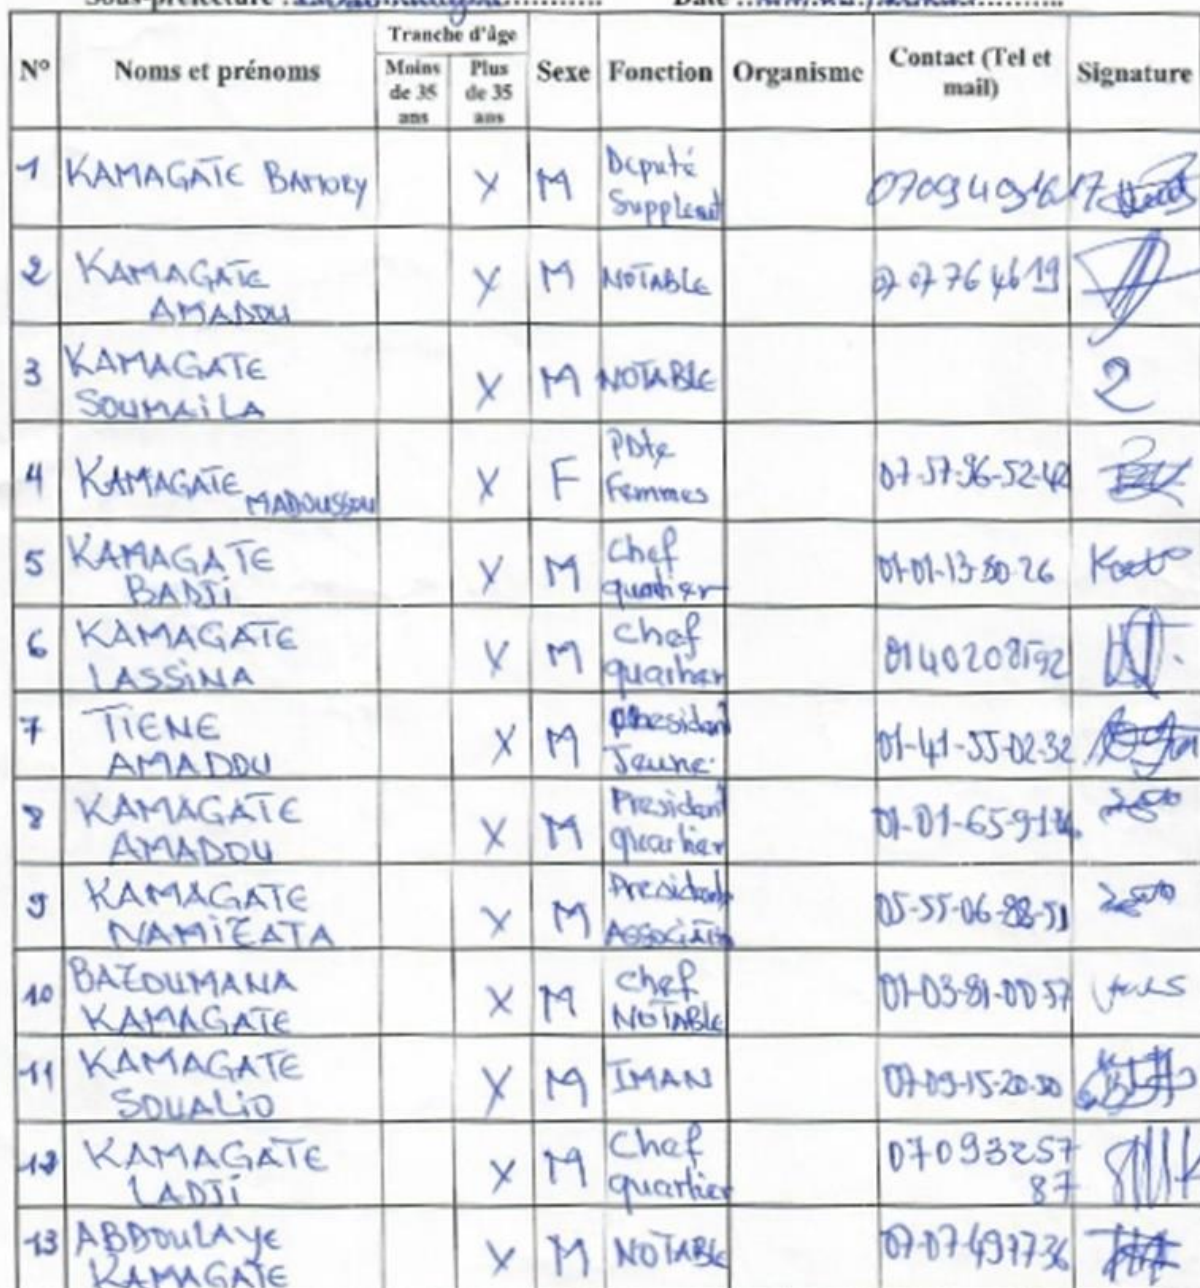 Sous-préfecture : Date :
N° Noms et prénoms Tranche d'âge Moins de 35 ans Plus de 35 ans Sexe Fonction Organisme Contact (Tel et mail) Signature
1 KAMAGATE BAMORY X M Deputé Suppleant 0709409617
2 KAMAGATE AMADOU X M NOTABLE 07 07 76 46 19
3 KAMAGATE SOUMAILA X M NOTABLE 2
4 KAMAGATE MADOUSSOU X F PDte Femmes 07-57-96-52-42
5 KAMAGATE BADJI X M Chef quartier 01-01-13-80-26
6 KAMAGATE LASSINA X M chef quartier 0140208592
7 TIENE AMADOU X M President Jeune 01-41-55-02-32
8 KAMAGATE AMADOU X M President quartier 01-01-65-91
9 KAMAGATE NAMIZATA X M Presidente ASSOCIATION 05-55-06-88-51
10 BAZOUMANA KAMAGATE X M chef NOTABLE 01-03-81-00-57
11 KAMAGATE SOUALIO X M IMAN 07-09-15-20-30
12 KAMAGATE LADJI X M Chef quartier 07093257 87
13 ABDOULAYE KAMAGATE X M NOTABLE 07-07-491736